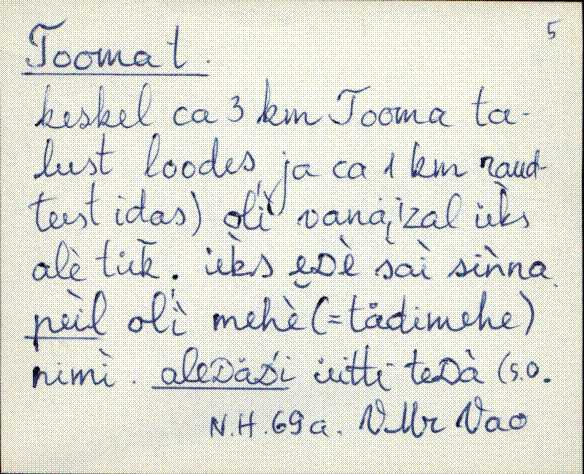 5
Tooma t.
keskel ca 3 km Tooma ta-
lust loodes ja ca 1 km raud-
teest idas) oli̬ì vanàị̀zal üks
alè tük̆. üèks ĕᴅè saì sìǹna.
pèìl olì̀ mehè (= tådimehe)
nimì. aleᴅäs̆i üitti̬ teᴅà (s.o.
N.H. 69 a. VMr Vao